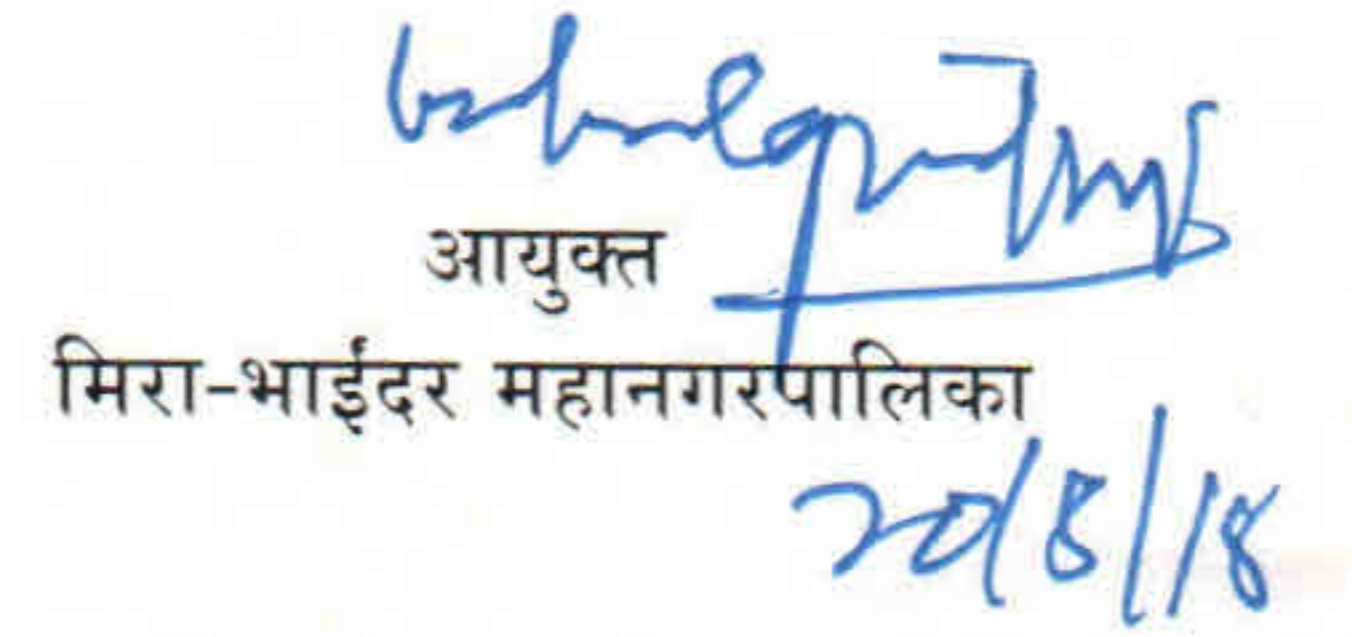 आयुक्त
मिरा-भाईंदर महानगरपालिका
20/8/18